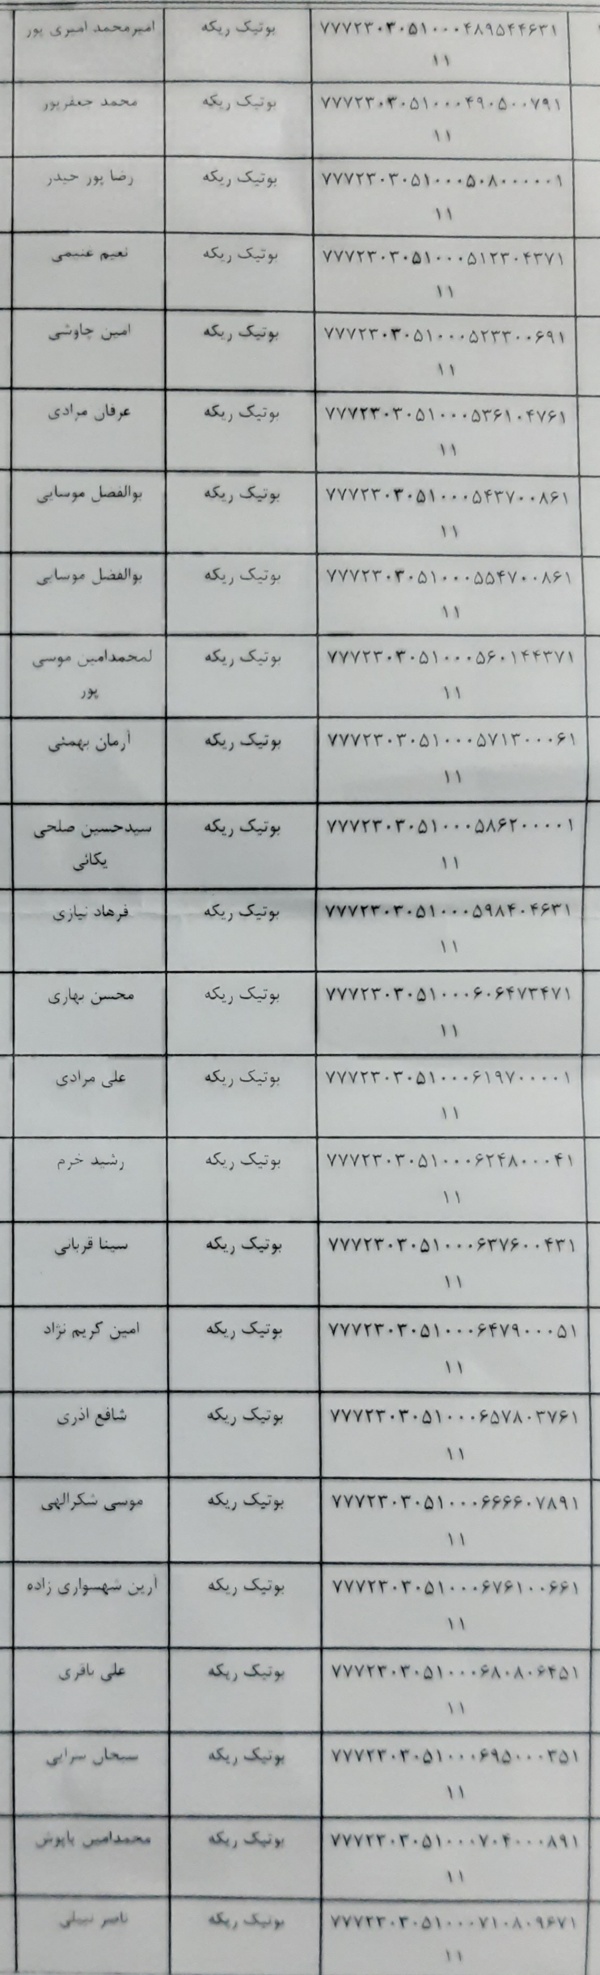 ۷۷۷۲۳۰۳۰۵۱۰۰۰۴۸۹۵۴۴۶۳۱ بوتیک ریکه امیرمحمد امیری پور
۱۱
۷۷۷۲۳۰۳۰۵۱۰۰۰۴۹۰۵۰۰۷۹۱ بوتیک ریکه محمد جعفرپور
۱۱
۷۷۷۲۳۰۳۰۵۱۰۰۰۵۰۸۰۰۰۰۰۱ بوتیک ریکه رضا پور حیدر
۱۱
۷۷۷۲۳۰۳۰۵۱۰۰۰۵۱۲۳۰۴۳۷۱ بوتیک ریکه نعیم
۱۱
۷۷۷۲۳۰۳۰۵۱۰۰۰۵۲۳۳۰۰۶۹۱ بوتیک ریکه امین چاوشی
۱۱
۷۷۷۲۳۰۳۰۵۱۰۰۰۵۳۶۱۰۴۷۶۱ بوتیک ریکه عرفان مرادی
۱۱
۷۷۷۲۳۰۳۰۵۱۰۰۰۵۴۳۷۰۰۸۶۱ بوتیک ریکه بوالفضل موسایی
۱۱
۷۷۷۲۳۰۳۰۵۱۰۰۰۵۵۴۷۰۰۸۶۱ بوتیک ریکه بوالفضل موسایی
۱۱
۷۷۷۲۳۰۳۰۵۱۰۰۰۵۶۰۱۴۴۳۷۱ بوتیک ریکه لمحمدامین موسی
۱۱ پور
۷۷۷۲۳۰۳۰۵۱۰۰۰۵۷۱۳۰۰۰۶۱ بوتیک ریکه آرمان بهمئی
۱۱
۷۷۷۲۳۰۳۰۵۱۰۰۰۵۸۶۲۰۰۰۰۱ بوتیک ریکه سیدحسین صلحی
۱۱ یکائی
۷۷۷۲۳۰۳۰۵۱۰۰۰۵۹۸۴۰۴۶۳۱ بوتیک ریکه فرهاد نیازی
۱۱
۷۷۷۲۳۰۳۰۵۱۰۰۰۶۰۶۴۷۳۴۷۱ بوتیک ریکه محسن بهاری
۱۱
۷۷۷۲۳۰۳۰۵۱۰۰۰۶۱۹۷۰۰۰۰۱ بوتیک ریکه علی مرادی
۱۱
۷۷۷۲۳۰۳۰۵۱۰۰۰۶۲۴۸۰۰۰۴۱ بوتیک ریکه رشید خرم
۱۱
۷۷۷۲۳۰۳۰۵۱۰۰۰۶۳۷۶۰۰۴۳۱ بوتیک ریکه سینا قربانی
۱۱
۷۷۷۲۳۰۳۰۵۱۰۰۰۶۴۷۹۰۰۰۵۱ بوتیک ریکه امین کریم نژاد
۱۱
۷۷۷۲۳۰۳۰۵۱۰۰۰۶۵۷۸۰۳۷۶۱ بوتیک ریکه شافع اذری
۱۱
۷۷۷۲۳۰۳۰۵۱۰۰۰۶۶۶۶۰۷۸۹۱ بوتیک ریکه موسی شکرالهی
۱۱
۷۷۷۲۳۰۳۰۵۱۰۰۰۶۷۶۱۰۰۶۶۱ بوتیک ریکه آرین شهسواری زاده
۱۱
۷۷۷۲۳۰۳۰۵۱۰۰۰۶۸۰۸۰۶۴۵۱ بوتیک ریکه علی باقری
۱۱
۷۷۷۲۳۰۳۰۵۱۰۰۰۶۹۵۰۰۰۳۵۱ بوتیک ریکه سبحان سرایی
۱۱
۷۷۷۲۳۰۳۰۵۱۰۰۰۷۰۴۰۰۰۸۹۱ بوتیک ریکه محمدامین پاپوش
۱۱
۷۷۷۲۳۰۳۰۵۱۰۰۰۷۱۰۸۰۹۶۷۱ بوتیک ریکه ناصر
۱۱